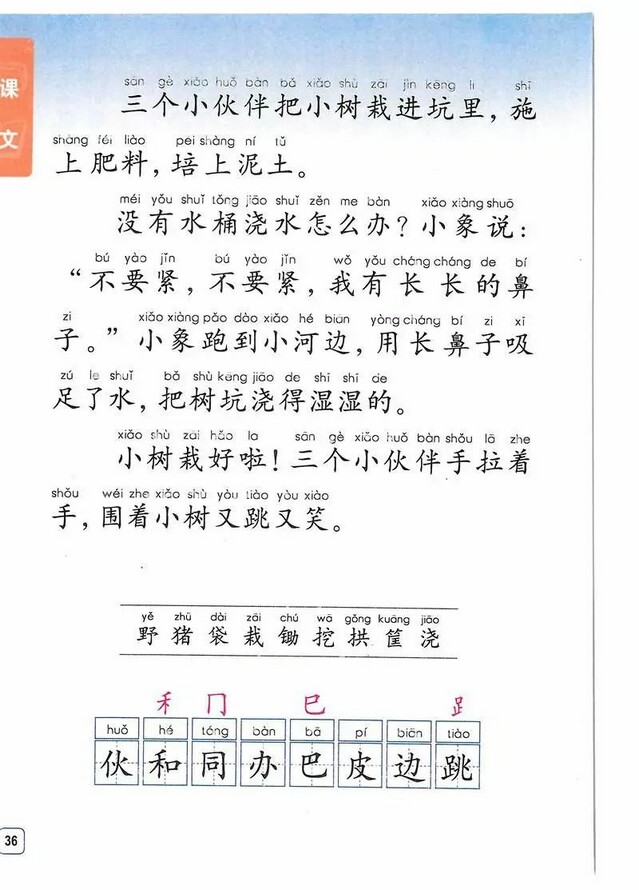 课
文
sān gè xiǎo huǒ bàn bǎ xiǎo shù zāi jìn kēng lǐ shī
三个小伙伴把小树栽进坑里，施
shàng féi liào péi shàng ní tǔ
上肥料，培上泥土。
méi yǒu shuǐ tǒng jiāo shuǐ zěn me bàn xiǎo xiàng shuō
没有水桶浇水怎么办？小象说：
bú yào jǐn bú yào jǐn wǒ yǒu cháng cháng de bí
“不要紧，不要紧，我有长长的鼻
zi xiǎo xiàng pǎo dào xiǎo hé biān yòng cháng bí zi xī
子。”小象跑到小河边，用长鼻子吸
zú le shuǐ bǎ shù kēng jiāo de shī shī de
足了水，把树坑浇得湿湿的。
xiǎo shù zāi hǎo la sān gè xiǎo huǒ bàn shǒu lā zhe
小树栽好啦！三个小伙伴手拉着
shǒu wéi zhe xiǎo shù yòu tiào yòu xiào
手，围着小树又跳又笑。
yě zhū dài zāi chú wā gǒng kuāng jiāo
野猪袋栽锄挖拱筐浇
禾 冂 巴 𧾷
huǒ hé tóng bàn bā pí biān tiào
伙和同办巴皮边跳
36